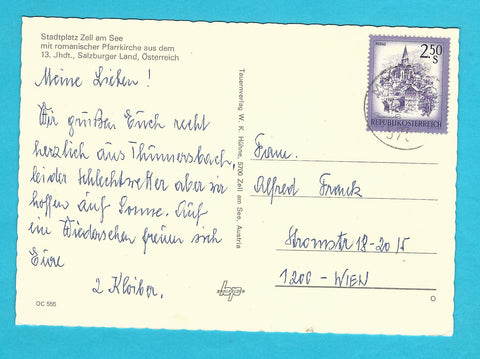 Stadtplatz Zell am See
mit romanischer Pfarrkirche aus dem
13. Jhdt., Salzburger Land, Österreich
Meine Lieben!
Wir grüßen Euch recht
herzlich aus Thumersbach,
leider Schlechtwetter aber wir
hoffen auf Sonne. Auf
ein Wiedersehen freuen sich
Eure
2 Kloiber.
OC 555
Tauernverlag W. K. Hühne, 5700 Zell am See, Austria
2,50
S
REPUBLIK ÖSTERREICH
Fam.
Alfred Franck
Stromstr 18-20 15
1200 - WIEN